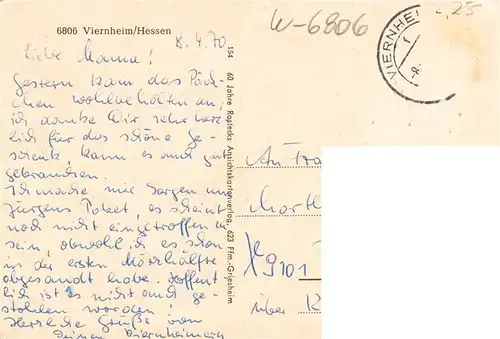 6806 Viernheim/Hessen
W-6806
-,25
VIERNHEI
8.4.70
Liebe Mama!
Gestern kam das Päck-
chen wohlbehalten an,
ich danke Dir sehr herz
lich für das schöne Ge-
schenk, kann es auch gut
gebrauchen.
Ich mache mir Sorgen um
Jürgens Paket, es scheint
noch nicht eingetroffen zu
sein, obwohl ich es schon
in der ersten Märzhälfte
abgesandt habe. Hoffent
lich ist es nicht auch ge-
stohlen worden!
Herzliche Grüße von
Deinen Viernheimern
154 60 Jahre Rostecks Ansichtskartenverlag, 623 Ffm.-Griesheim
An Fra
Marth
X9101
über K